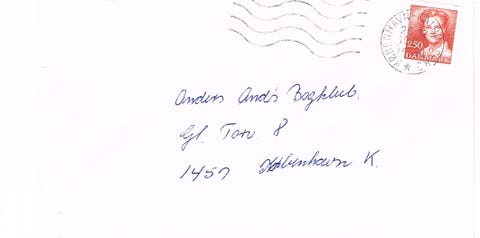 KØBENHAVN
250
DANMARK
Anders And's Bogklub.
Gl. Torv 8
1457 København K.